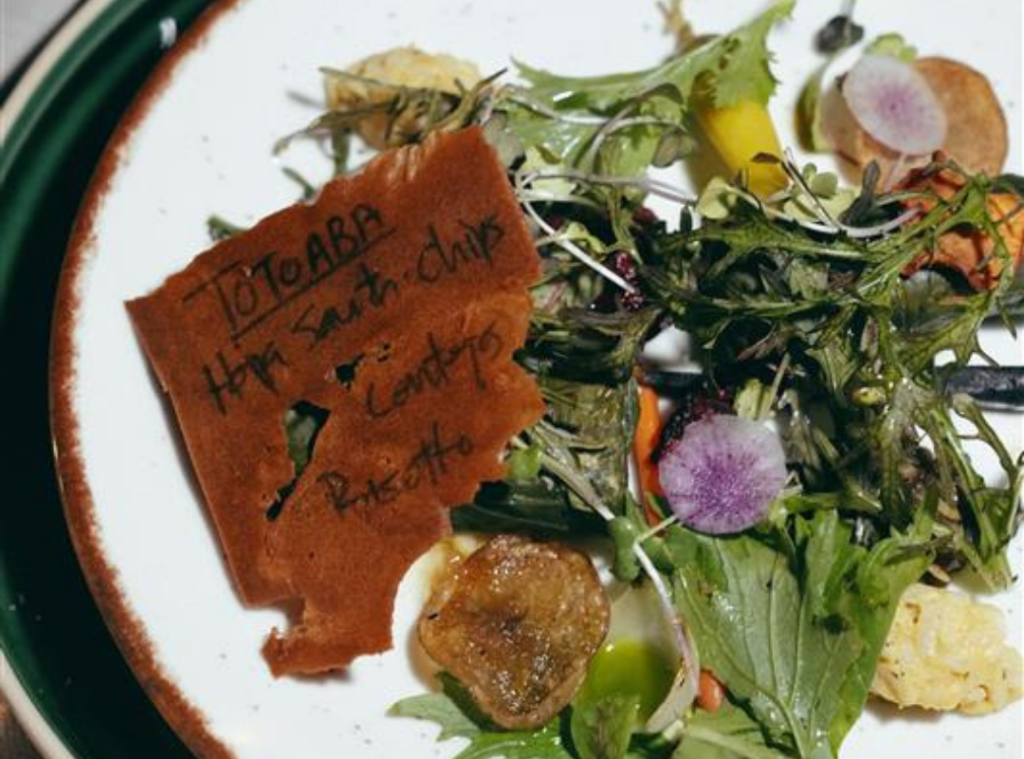 TOTOABA
Hoja Santa chips
Risotto